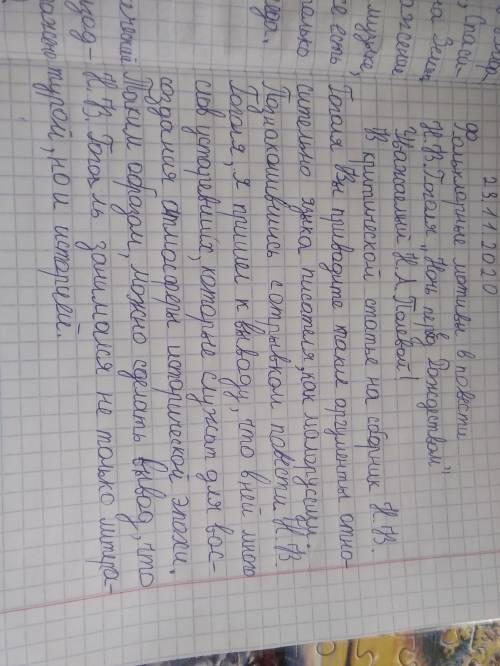 23.11.2020
Фольклорные мотивы в повести
Н.В.Гоголя „Ночь перед Рождеством"
Уважаемый Н.А.Полевой!
В критической статье на сборник Н.В.
Гоголя Вы приводите такие аргументы отно-
сительно языка писателя, как малоруссизмы.
Познакомившись с отрывком повести Н.В.
Гоголя, я пришел к выводу, что в ней много
слов устаревших, которые служат для вос-
создания атмосферы исторической эпохи.
Таким образом, можно сделать вывод, что
Н.В. Гоголь занимался не только литера-
турой, но и историей.